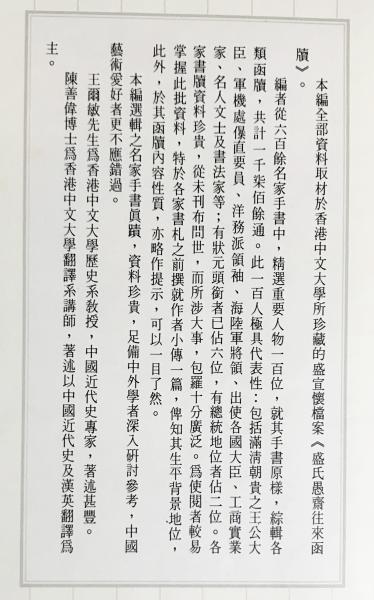 本編全部資料取材於香港中文大學所珍藏的盛宣懷檔案《盛氏愚齋往來函
牘》。
編者從六百餘名家手書中，精選重要人物一百位，就其手書原樣，綜輯各
類函牘，共計一千柒佰餘通。此一百人極具代表性：包括滿清朝貴之王公大
臣、軍機處僳直要員、洋務派領袖、海陸軍將領、出使各國大臣、工商實業
家、名人文士及書法家等；有狀元頭銜者已佔六位，有總統地位者佔二位。各
家書牘資料珍貴，從未刊布問世，而所涉大事，包羅十分廣泛。爲使閱者較易
掌握此批資料，特於各家書札之前撰就作者小傳一篇，俾知其生平背景地位，
此外，於其函牘內容性質，亦略作提示，可以一目了然。
本編選輯之名家手書眞蹟，資料珍貴，足備中外學者深入硏討參考，中國
藝術愛好者更不應錯過。
王爾敏先生爲香港中文大學歷史系敎授，中國近代史專家，著述甚豐。
陳善偉博士爲香港中文大學翻譯系講師，著述以中國近代史及漢英翻譯爲
主。